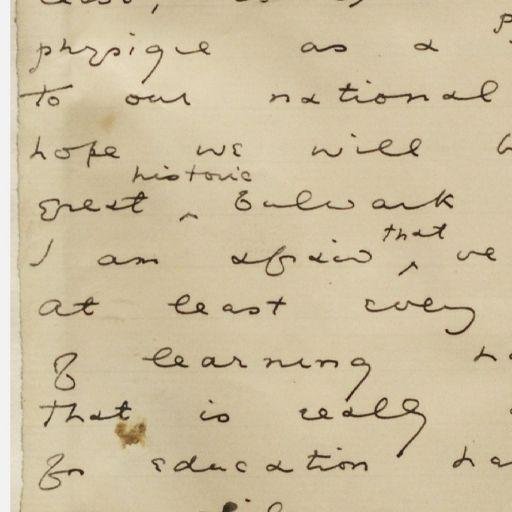 physique as a
to our national
hope we will
historic
great ‸ Bulwark
that
I am afraid ‸ we
at least every
of learning
that is really
for education